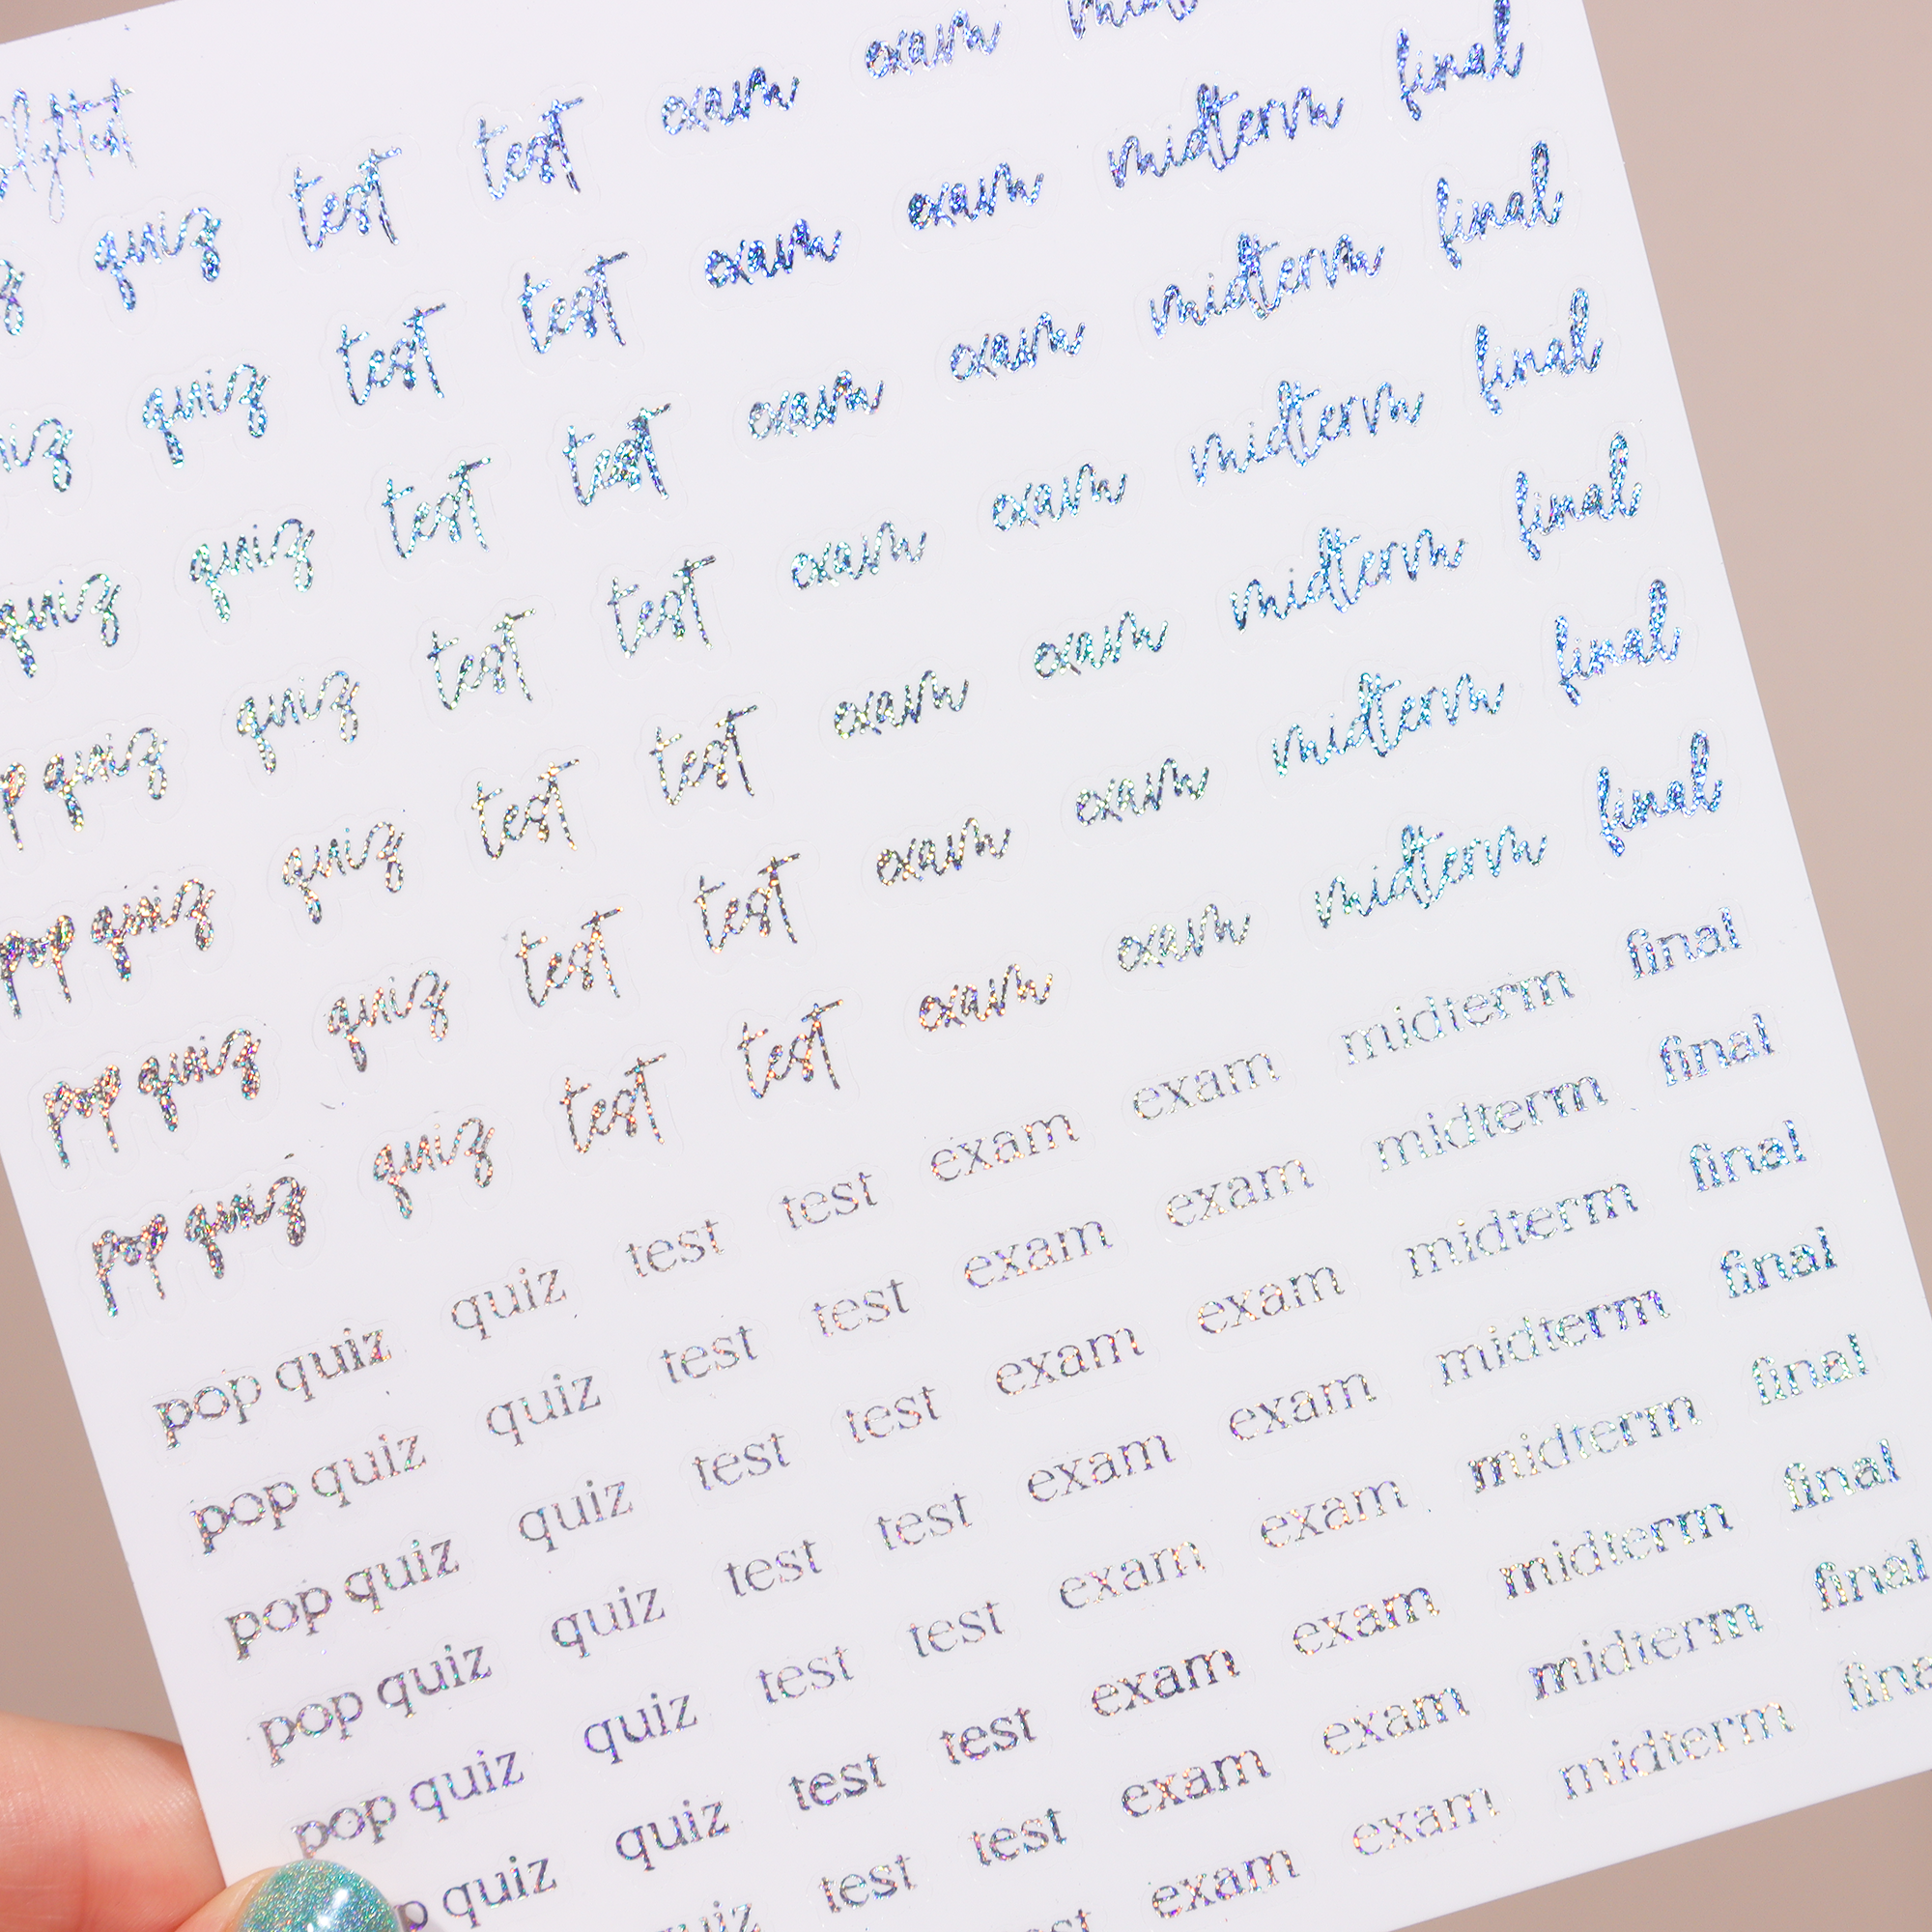 quiz test test exam exam
quiz test test exam exam midterm final
quiz quiz test test exam exam midterm final
quiz quiz test test exam exam midterm final
pop quiz quiz test test exam exam midterm final
pop quiz quiz test test exam exam midterm final
pop quiz quiz test test exam exam midterm final
pop quiz quiz test test exam exam midterm final
pop quiz quiz test test exam exam midterm final
pop quiz quiz test test exam exam midterm final
pop quiz quiz test test exam exam midterm final
pop quiz quiz test test exam exam midterm final
quiz quiz test test exam exam midterm final
test test exam exam midterm final
exam exam midterm